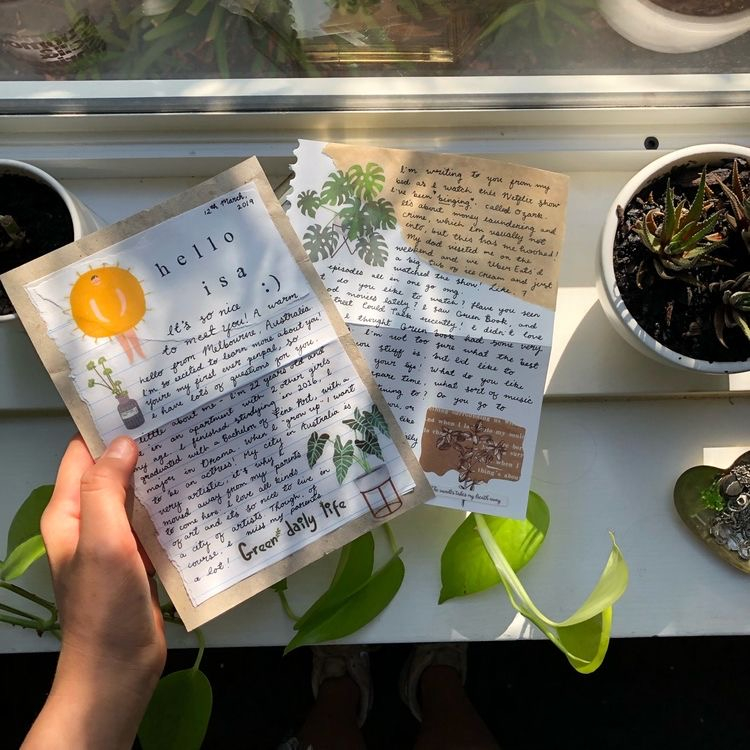 12th March,
2019
hello
isa :)
It's so nice
to meet you! A warm
hello from Melbourne, Australia.
I'm so excited to learn more about you!
You're my first ever penpal, so
I have lots of questions for you.
little about me - I'm 22 years old and
live in an apartment with 2 other girls
my age. I finished studying in 2016, I
graduated with a Bachelor of Fine Art, with a
major in Drama. When I grow up I want
to be an actress! My city in Australia is
very artistic, it's why I
moved away from my parents
to come here. I love all kinds
of art and it's so nice to live in
a city of artists. Though, of
course, I miss my parents
a lot!
Green daily life
I'm writing to you from my
bed as I watch this Netflix show
I've been "binging", called Ozark.
It's about money laundering and
crime, which I'm usually not
into, but this has me hooked!
My dad visited me on the
weekend and we Uber Eats'd
a big tub of ice cream and just
watched the show! Like, 7
episodes all in one go omg.
do you like to watch? Have you seen
movies lately? I saw Green Book and
Street Could Talk recently! I didn't love
I thought Green Book had some very
I'm not too sure what the best
you stuff is but I'd like to
your life! What do you like
spare time? What sort of music
to? Do you go to
The months takes my breath away